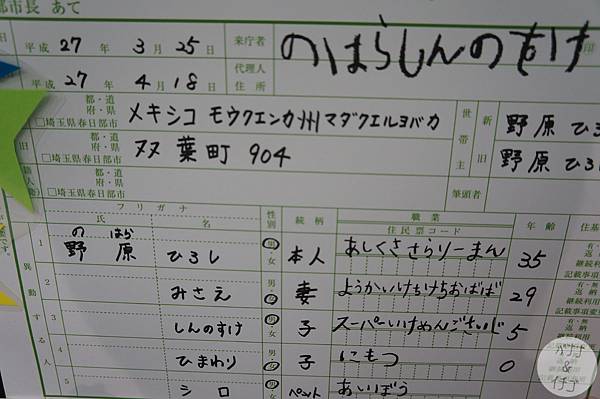 部市長 あて
日 平成 27 年 3 月 25 日 来庁者 のはらしんのすけ 印
日 平成 27 年 4 月 18 日 代理人 住所
都・道 府・県 □埼玉県春日部市 メキシコ モウクエンカ州マダクエルヨバカ 世帯主 新 野原 ひろ
旧 都・道 府・県 □埼玉県春日部市 双葉町 904 旧 野原 ひろ
都・道 府・県 □埼玉県春日部市 筆頭者
フリガナ 性別 続柄 職業 年齢 住基
氏 名 住民票コード
異動する人
1 のはら 野原 ひろし 男・女 本人 あしくささらりーまん 35 有・無 返納 継続利用 記載事項変更
2 みさえ 男・女 妻 ようかいけちけちおばば 29 有・無 返納 継続利用 記載事項変更
3 しんのすけ 男・女 子 スーパーいけめんごさいじ 5 有・無 返納 継続利用 記載事項変更
4 ひまわり 男・女 子 にもつ 0
5 シロ 男・女 ペット あいぼう